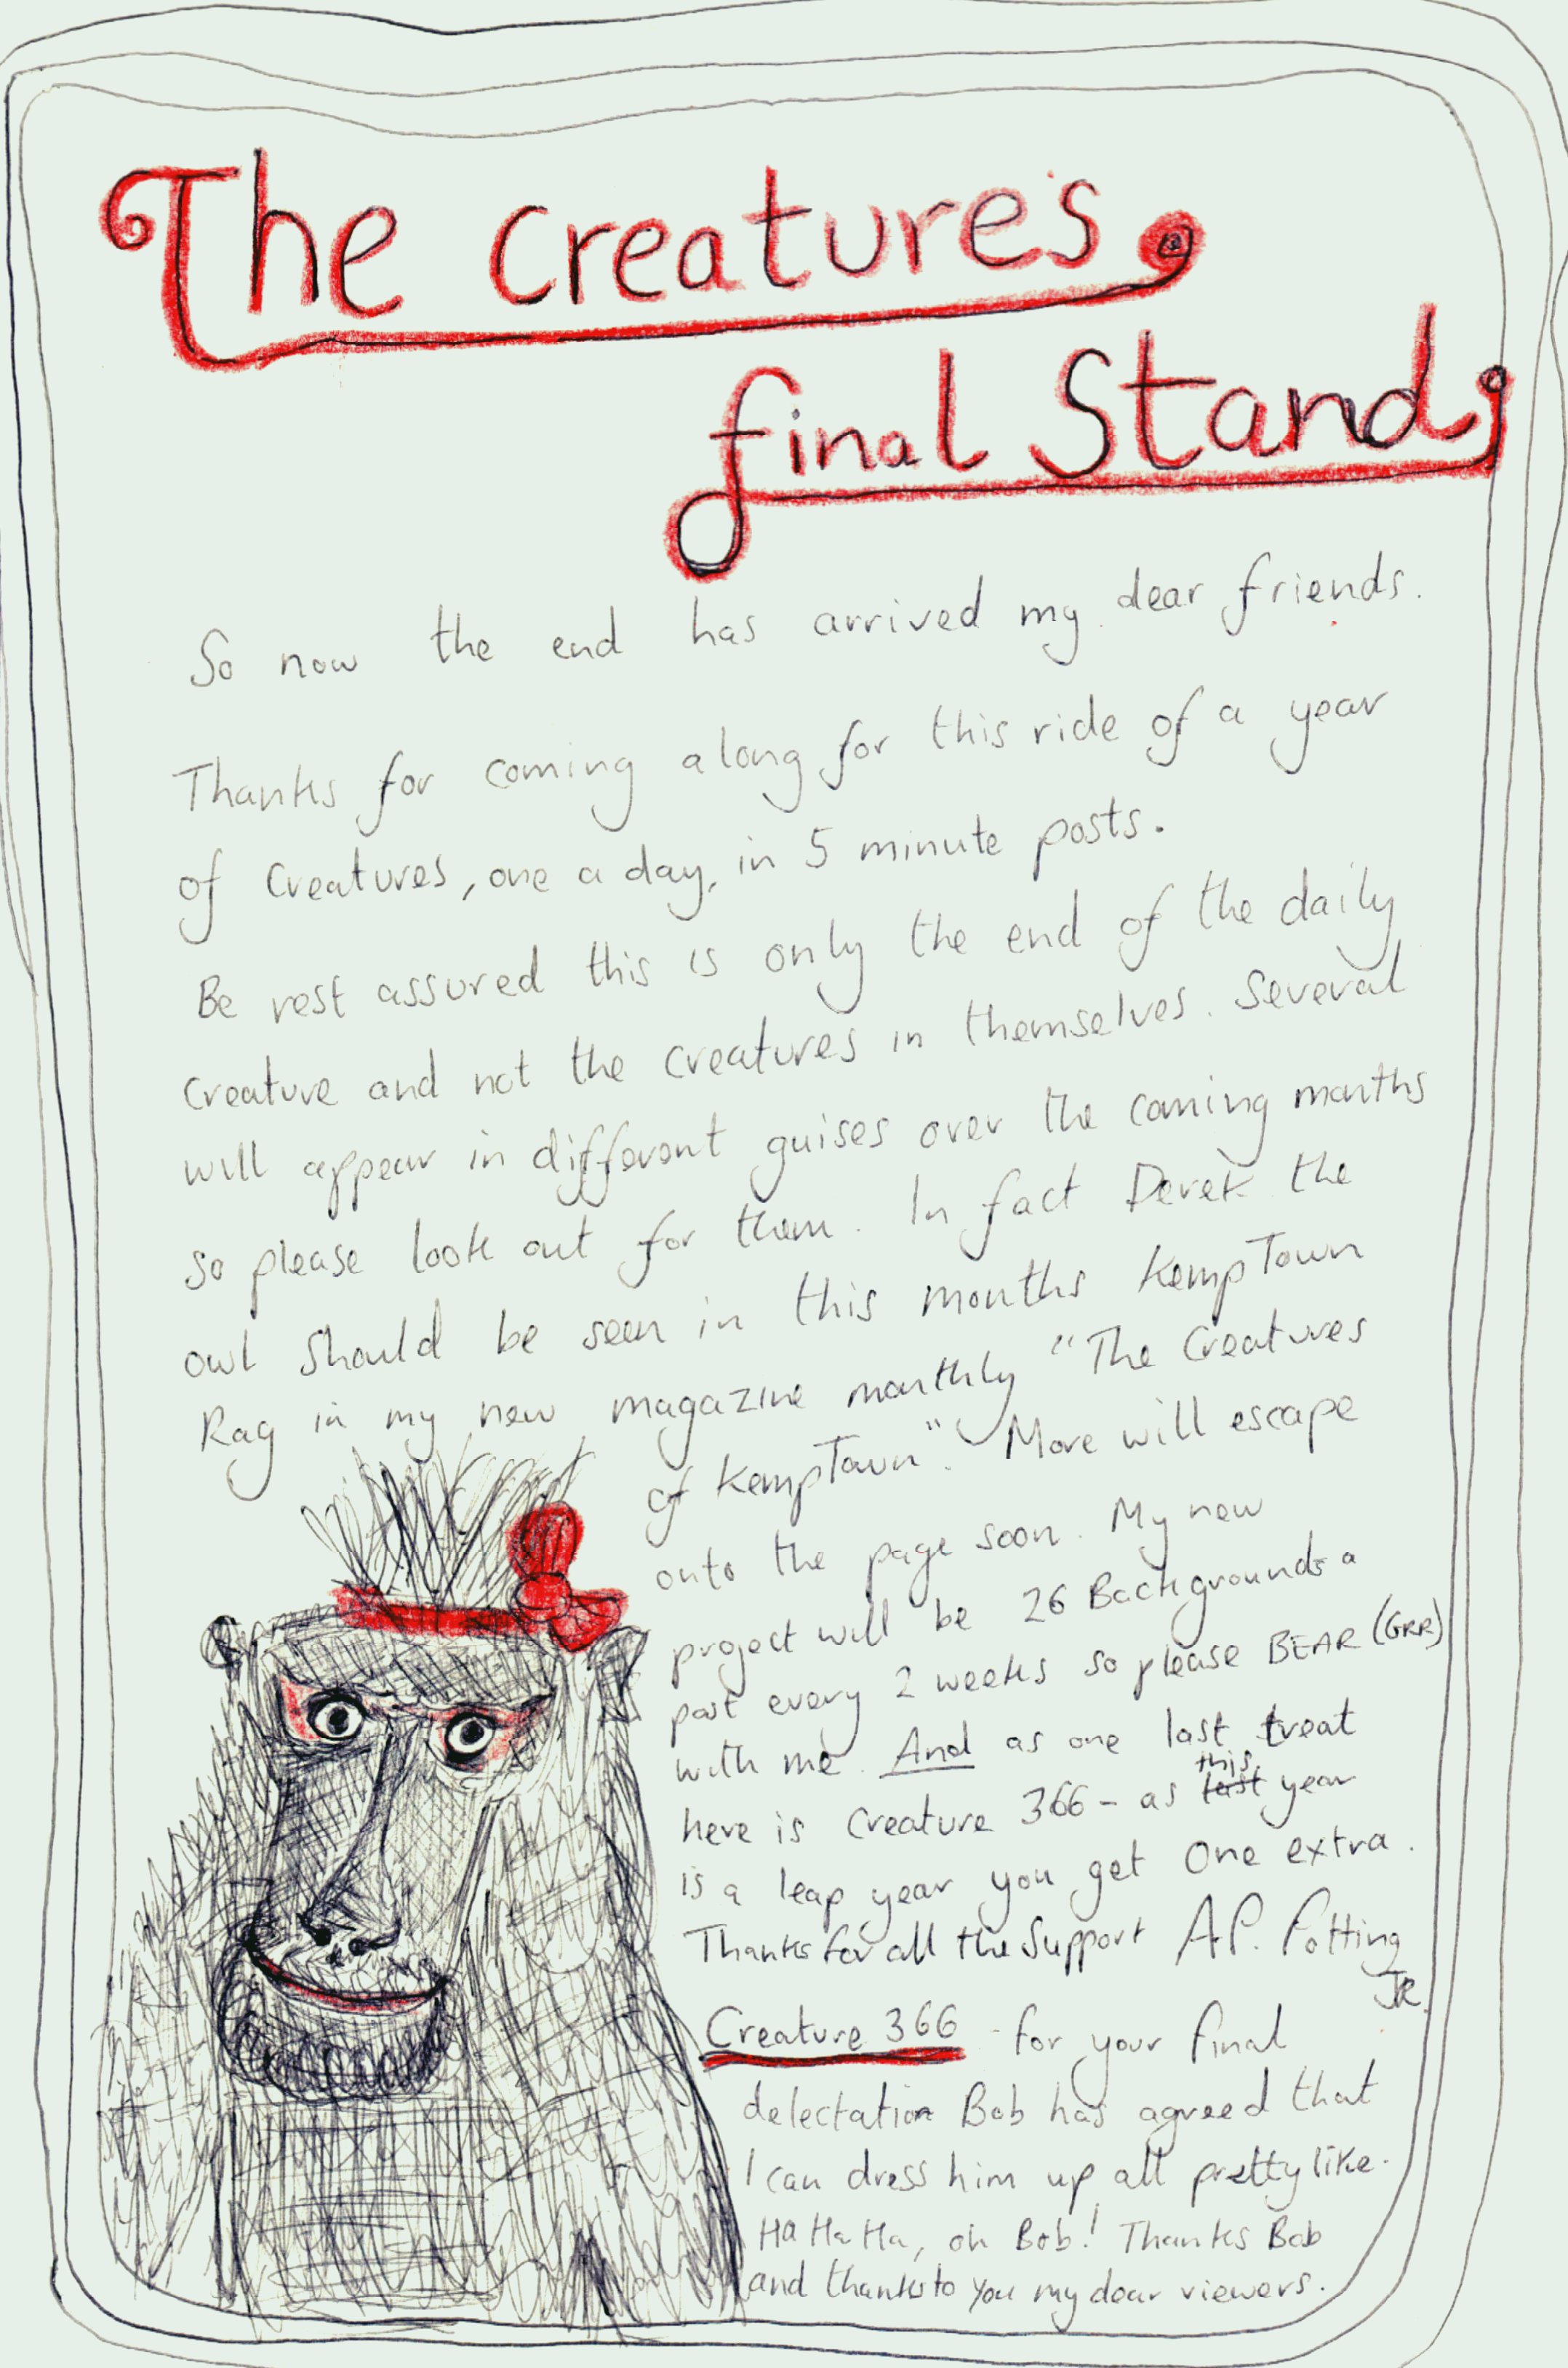 The Creatures
final Stand
So now the end has arrived my dear friends.
Thanks for coming along for this ride of a year
of Creatures, one a day, in 5 minute posts.
Be rest assured this is only the end of the daily
Creature and not the creatures in themselves. Several
will appear in different guises over the coming months
so please look out for them. In fact Derek the
owl should be seen in this months KempTown
Rag in my new magazine monthly "The Creatures
of KempTown". More will escape
onto the page soon. My new
project will be 26 Backgrounds a
post every 2 weeks so please BEAR (GRR)
with me. And as one last treat
here is Creature 366 - as last this year
is a leap year you get One extra.
Thanks for all the Support A.P. Potting
JR.
Creature 366 - for your final
delectation Bob has agreed that
I can dress him up all pretty like.
Ha Ha Ha, oh Bob! Thanks Bob
and thanks to you my dear viewers.